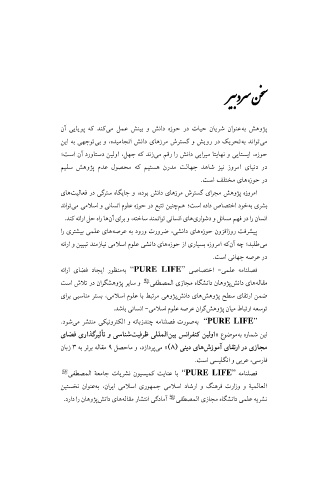 سخن سردبیر
پژوهش به‌عنوان شریان حیات در حوزه دانش و بینش عمل می‌کند که پویایی آن
می‌تواند به‌تحریک در رویش و گسترش مرزهای دانش انجامیده، و بی‌توجهی به این
حوزه، ایستایی و نهایتا میرایی دانش را رقم می‌زند که جهل، اولین دستاورد آن است؛
در دنیای امروز نیز شاهد جهالت مدرن هستیم که محصول عدم پژوهش سلیم
در حوزه‌های مختلف است.
امروزه پژوهش مجرای گسترش مرزهای دانش بوده، و جایگاه سترگی در فعالیت‌های
بشری به‌خود اختصاص داده است؛ هم‌چنین تتبع در حوزه علوم انسانی و اسلامی می‌تواند
انسان را در فهم مسائل و دشواری‌های انسانی توانمند ساخته، و برای آن‌ها راه حل ارائه کند.
پیشرفت روزافزون حوزه‌های دانشی، ضرورت ورود به عرصه‌های علمی بیشتری را
می‌طلبد؛ چه آن‌که امروزه بسیاری از حوزه‌های دانشی علوم اسلامی نیازمند تبیین و ارائه
در عرصه جهانی است.
فصلنامه علمی- اختصاصی "PURE LIFE" به‌منظور ایجاد فضای ارائه
مقاله‌های دانش‌پژوهان دانشگاه مجازی المصطفی ﷺ و سایر پژوهشگران در تلاش است
ضمن ارتقای سطح پژوهش‌های دانش‌پژوهی مرتبط با علوم اسلامی، بستر مناسبی برای
توسعه ارتباط میان پژوهش‌گران عرصه علوم اسلامی- انسانی باشد.
"PURE LIFE" به‌صورت فصلنامه چندزبانه و الکترونیکی منتشر می‌شود.
این شماره به‌موضوع «اولین کنفرانس بین‌المللی ظرفیت‌شناسی و تأثیرگذاری فضای
مجازی در ارتقای آموزش‌های دینی (۸)» می‌پردازد، و ماحصل ۹ مقاله برتر به ۳ زبان
فارسی، عربی و انگلیسی است.
فصلنامه "PURE LIFE" با عنایت کمیسیون نشریات جامعة المصطفی ﷺ
العالمیة و وزارت فرهنگ و ارشاد اسلامی جمهوری اسلامی ایران، به‌عنوان نخستین
نشریه علمی دانشگاه مجازی المصطفی ﷺ آمادگی انتشار مقاله‌های دانش‌پژوهان را دارد.